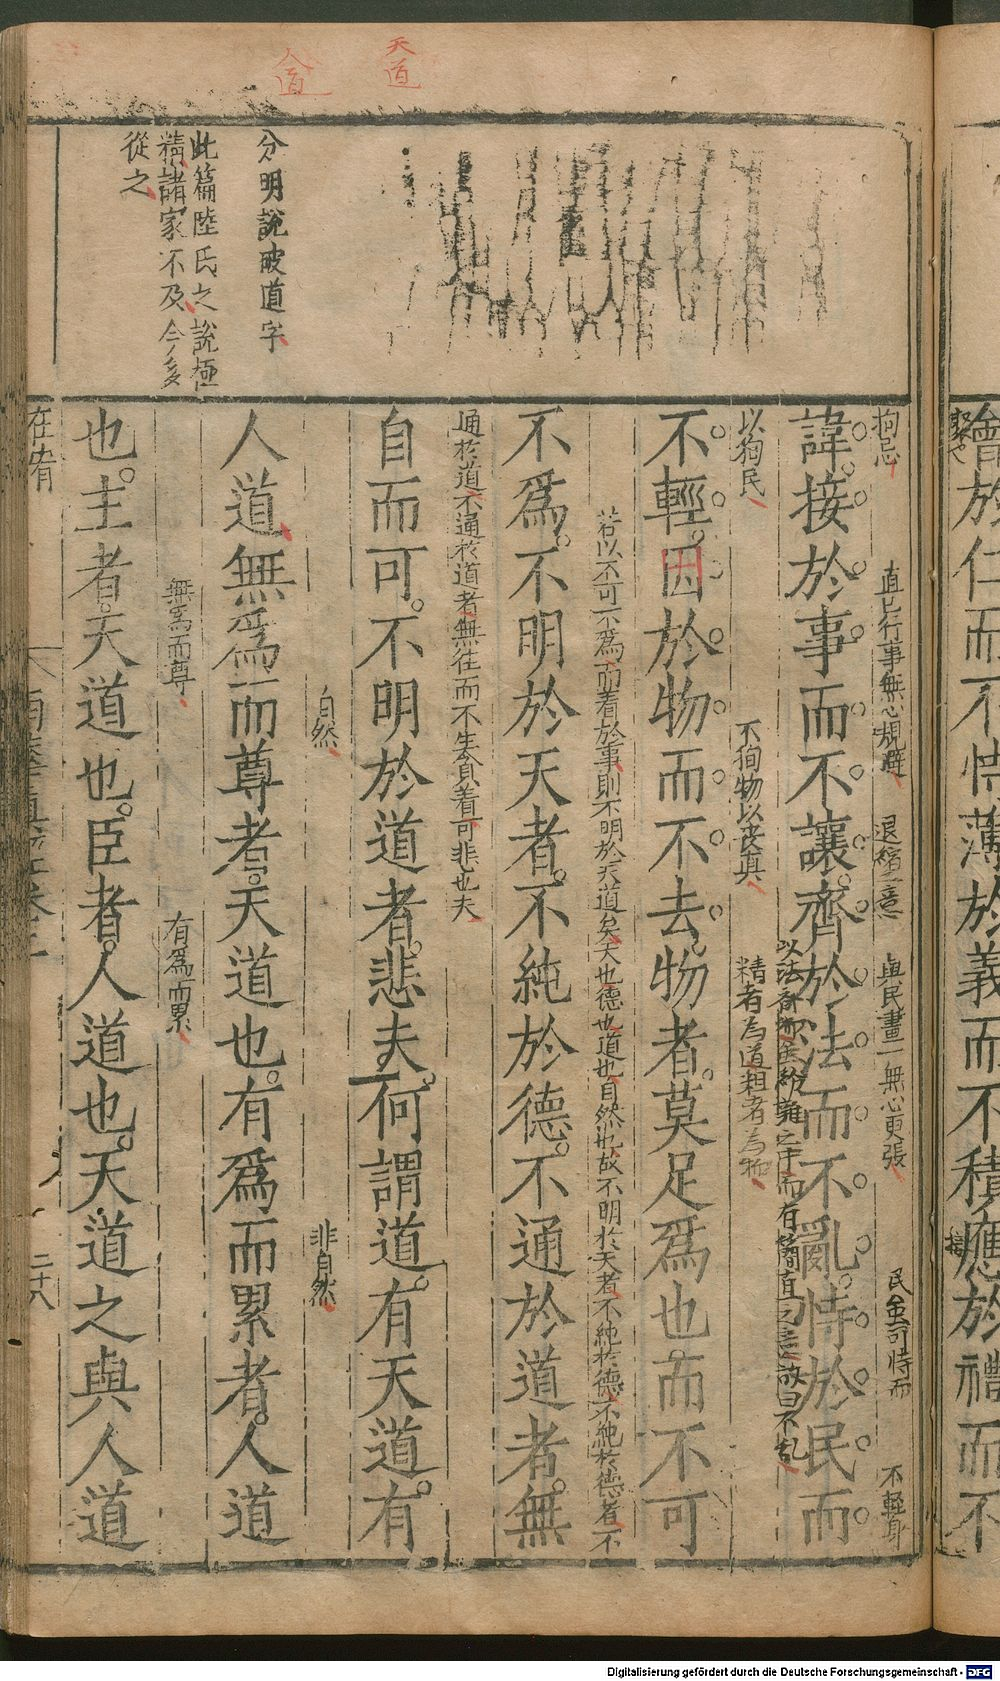 天道
人道
分明說破道字
此篇陸氏之說極
精諸家不及今多
從之
會於仁而不恃薄於義而不積應於禮而不
拘忌
直已行事無心規避
退縮之意
與民畫一無心更張
民金可恃而
不輕身
諱。接於事而不讓。齊於法而不亂。恃於民而
以法齊物
而有簡直之
故曰不乱
以狥民
不狥物以喪真
精者為道粗者為物
不輕。因於物而不去。物者。莫足爲也。而不可
若以不可不為而着於事則不明於天道矣天也德也道也自然也故不明於天者不純於德不純於德者不
不爲。不明於天者。不純於德。不通於道者。無
通於道不通於道者無往而不生責着可非也夫
自而可。不明於道者。悲夫。何謂道。有天道。有
自然
非自然
人道無爲而尊者。天道也。有爲而累者。人道
無為而尊
有為而累
也。主者。天道也。臣者。人道也。天道之與人道
在宥
二十八
Digitalisierung gefördert durch die Deutsche Forschungsgemeinschaft - DFG